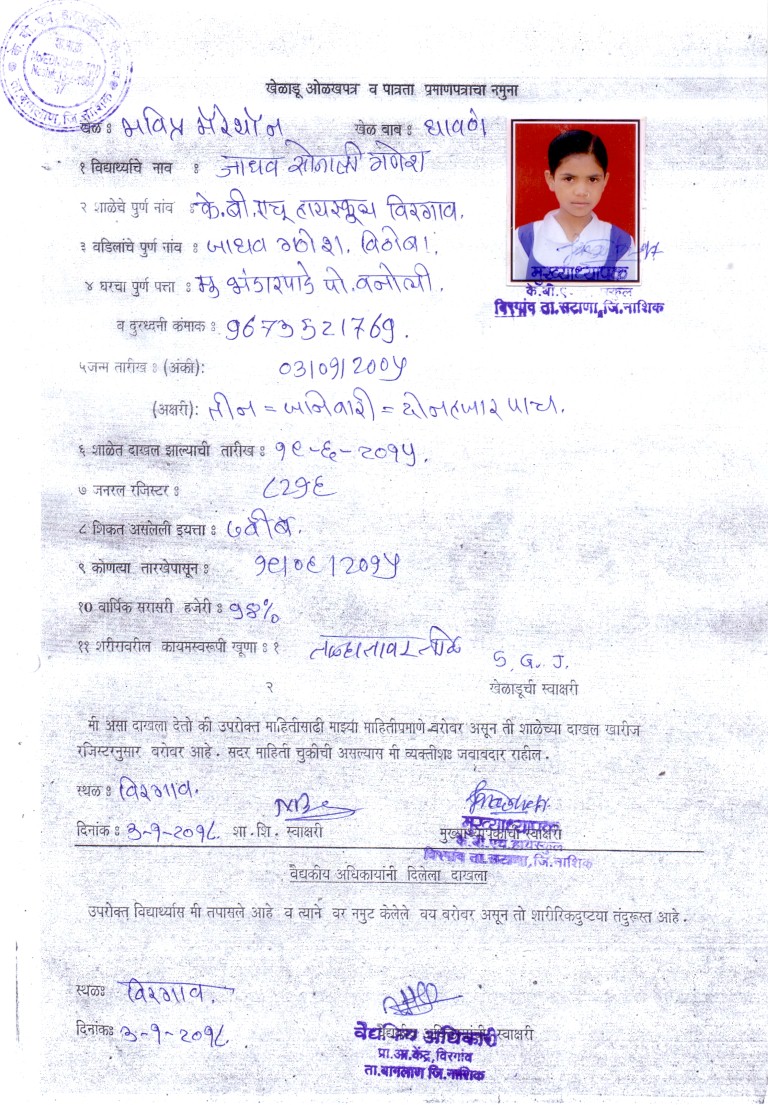 खेळाडू ओळखपत्र व पात्रता प्रमाणपत्राचा नमुना
खेळ ः मविप्र मॅरेथॉन खेळ बाब ः धावणे
१ विद्यार्थ्याचे नाव ः जाधव सोनाली गणेश
२ शाळेचे पुर्ण नांव ः के.बी.एच् हायस्कूल विरगाव.
३ वडिलांचे पुर्ण नांव ः जाधव गणेश. विठोबा.
४ घरचा पुर्ण पत्ता ः मु भंडारपाडे पो. वनोली.
व दुरध्वनी कंमाक ः 9673521769.
५जन्म तारीख ः (अंकी): 03/01/200५
(अक्षरी): तीन = जानेवारी = दोनहजार पाच.
६ शाळेत दाखल झाल्याची तारीख ः १९-६-२०१५.
७ जनरल रजिस्टर ः ८२१६
८ शिकत असलेली इयत्ता ः ७वीब.
९ कोणत्या तारखेपासून ः १९/०६/२०१५
१0 वार्षिक सरासरी हजेरी ः ९४%
११ शरीरावरील कायमस्वरूपी खूणा ः १ तळहातावर तीळ
S. G. J.
२ खेळाडूची स्वाक्षरी
मुख्याध्यापक
विरगांव ता.सटाणा,जि.नाशिक
मी असा दाखला देतो की उपरोक्त माहितीसाढी माझ्या माहितीप्रमाणे बरोवर असून ती शाळेच्या दाखल खारीज
रजिस्टरनुसार बरोवर आहे . सदर माहिती चुकीची असल्यास मी व्यक्तीशः जवावदार राहील .
स्थळ ः विरगाव.
दिनांक ः ३-१-२०१८ शा. शि. स्वाक्षरी मुख्याध्यापकाची स्वाक्षरी
मुख्याध्यापक
के.बी.एच.हायस्कुल
विरगांव ता.सटाणा,जि.नाशिक
वैद्यकीय अधिकायांनी दिलेला दाखला
उपरोक्त विद्यार्थ्यास मी तपासले आहे व त्याने वर नमुट केलेले वय बरोवर असून तो शारीरिकदुष्टया तंदुरूस्त आहे .
स्थळः विरगाव.
दिनांकः ३-१-२०१८ स्वाक्षरी
वैद्यकिय अधिकारी
प्रा.आ.केंद्र, विरगांव
ता.बागलाण जि.नाशिक